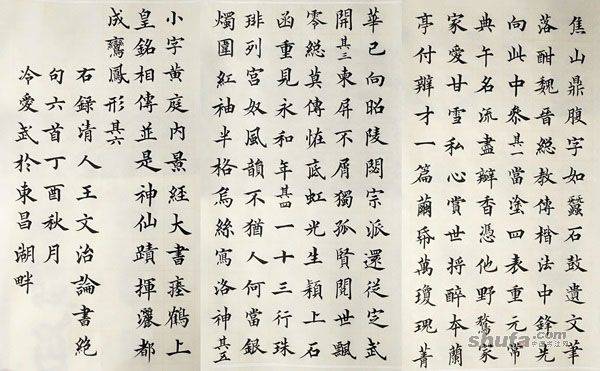 焦山鼎腹字如蠶石鼓遺文筆
落酣魏晉総教傳楷法中鋒先
向此中叅其一當塗四表重元常
典午名流盡瓣香憑他野鶩家
家愛甘雪私心賞世將醉本蘭
亭付辦才一篇繭帋萬瓊瑰菁
華已向昭陵閟宗派還從定武
開其三東屏不屑獨孤賢閱世飄
零総莫傳恠底虹光生穎上石
函重見永和年其四一十三行珠
琲列宮奴風韻不猶人何當銀
燭圍紅袖半格烏絲寫洛神其五
小字黃庭內景經大書瘞鶴上
皇銘相傳並是神仙蹟揮灑都
成鸞鳳形其六
右錄清人王文治論書絕
句六首丁酉秋月
冷愛武於東昌湖畔
shufa.com
中国书法网